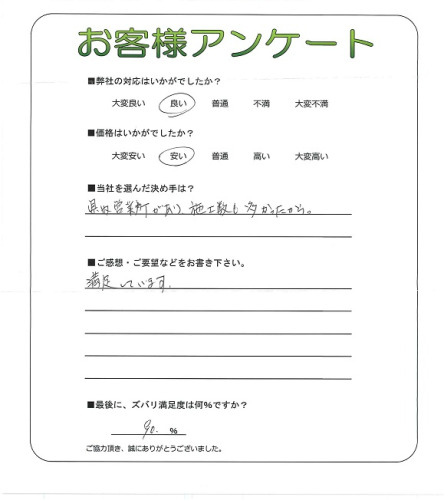 お客様アンケート
■弊社の対応はいかがでしたか？
大変良い 良い 普通 不満 大変不満
■価格はいかがでしたか？
大変安い 安い 普通 高い 大変高い
■当社を選んだ決め手は？
県内営業所があり、施工数も多かったから。
■ご感想・ご要望などをお書き下さい。
満足しています。
■最後に、ズバリ満足度は何%ですか？
90. %
ご協力頂き、誠にありがとうございました。